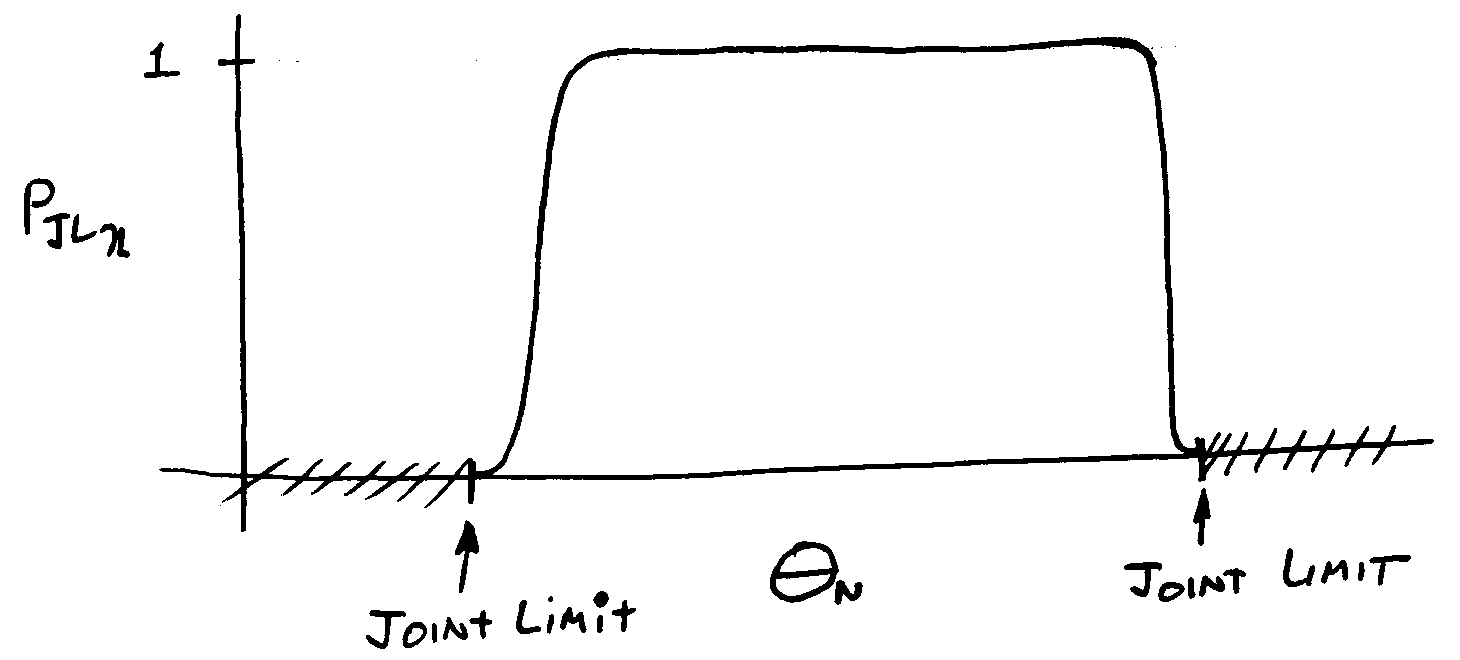 1
P_JLn
θN
JOINt LiMit
JOINT LIMIT